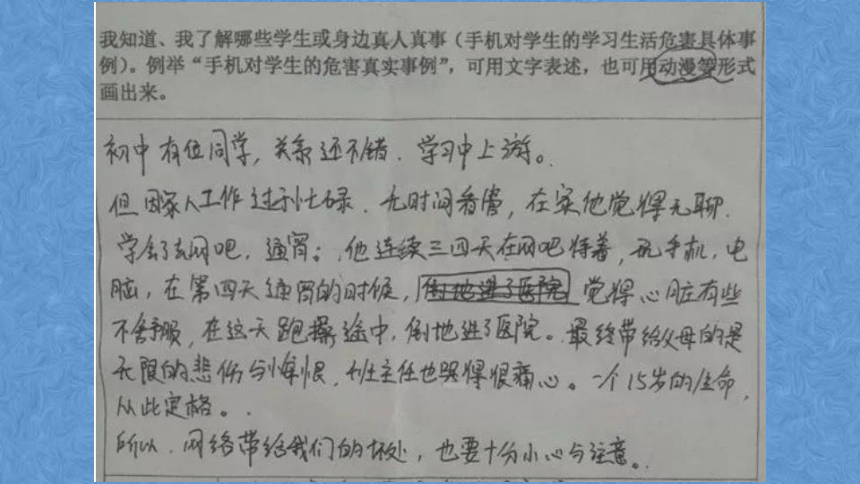 我知道、我了解哪些学生或身边真人真事（手机对学生的学习生活危害具体事
例）。例举“手机对学生的危害真实事例”，可用文字表述，也可用动漫等形式
画出来。
初中有位同学，关系还不错．学习中上游。
但因家人工作过于忙碌．无时间看管，在家他觉得无聊．
学会了去网吧，通宵；他连续三四天在网吧待着，玩手机，电
脑，在第四天通宵的时候，倒地进了医院 觉得心脏有些
不舒服，在这天跑操途中，倒地进了医院。最终带给父母的是
无限的悲伤与悔恨．班主任也哭得很痛心。一个15岁的生命，
从此定格。
所以．网络带给我们的坏处，也要十分小心与注意。